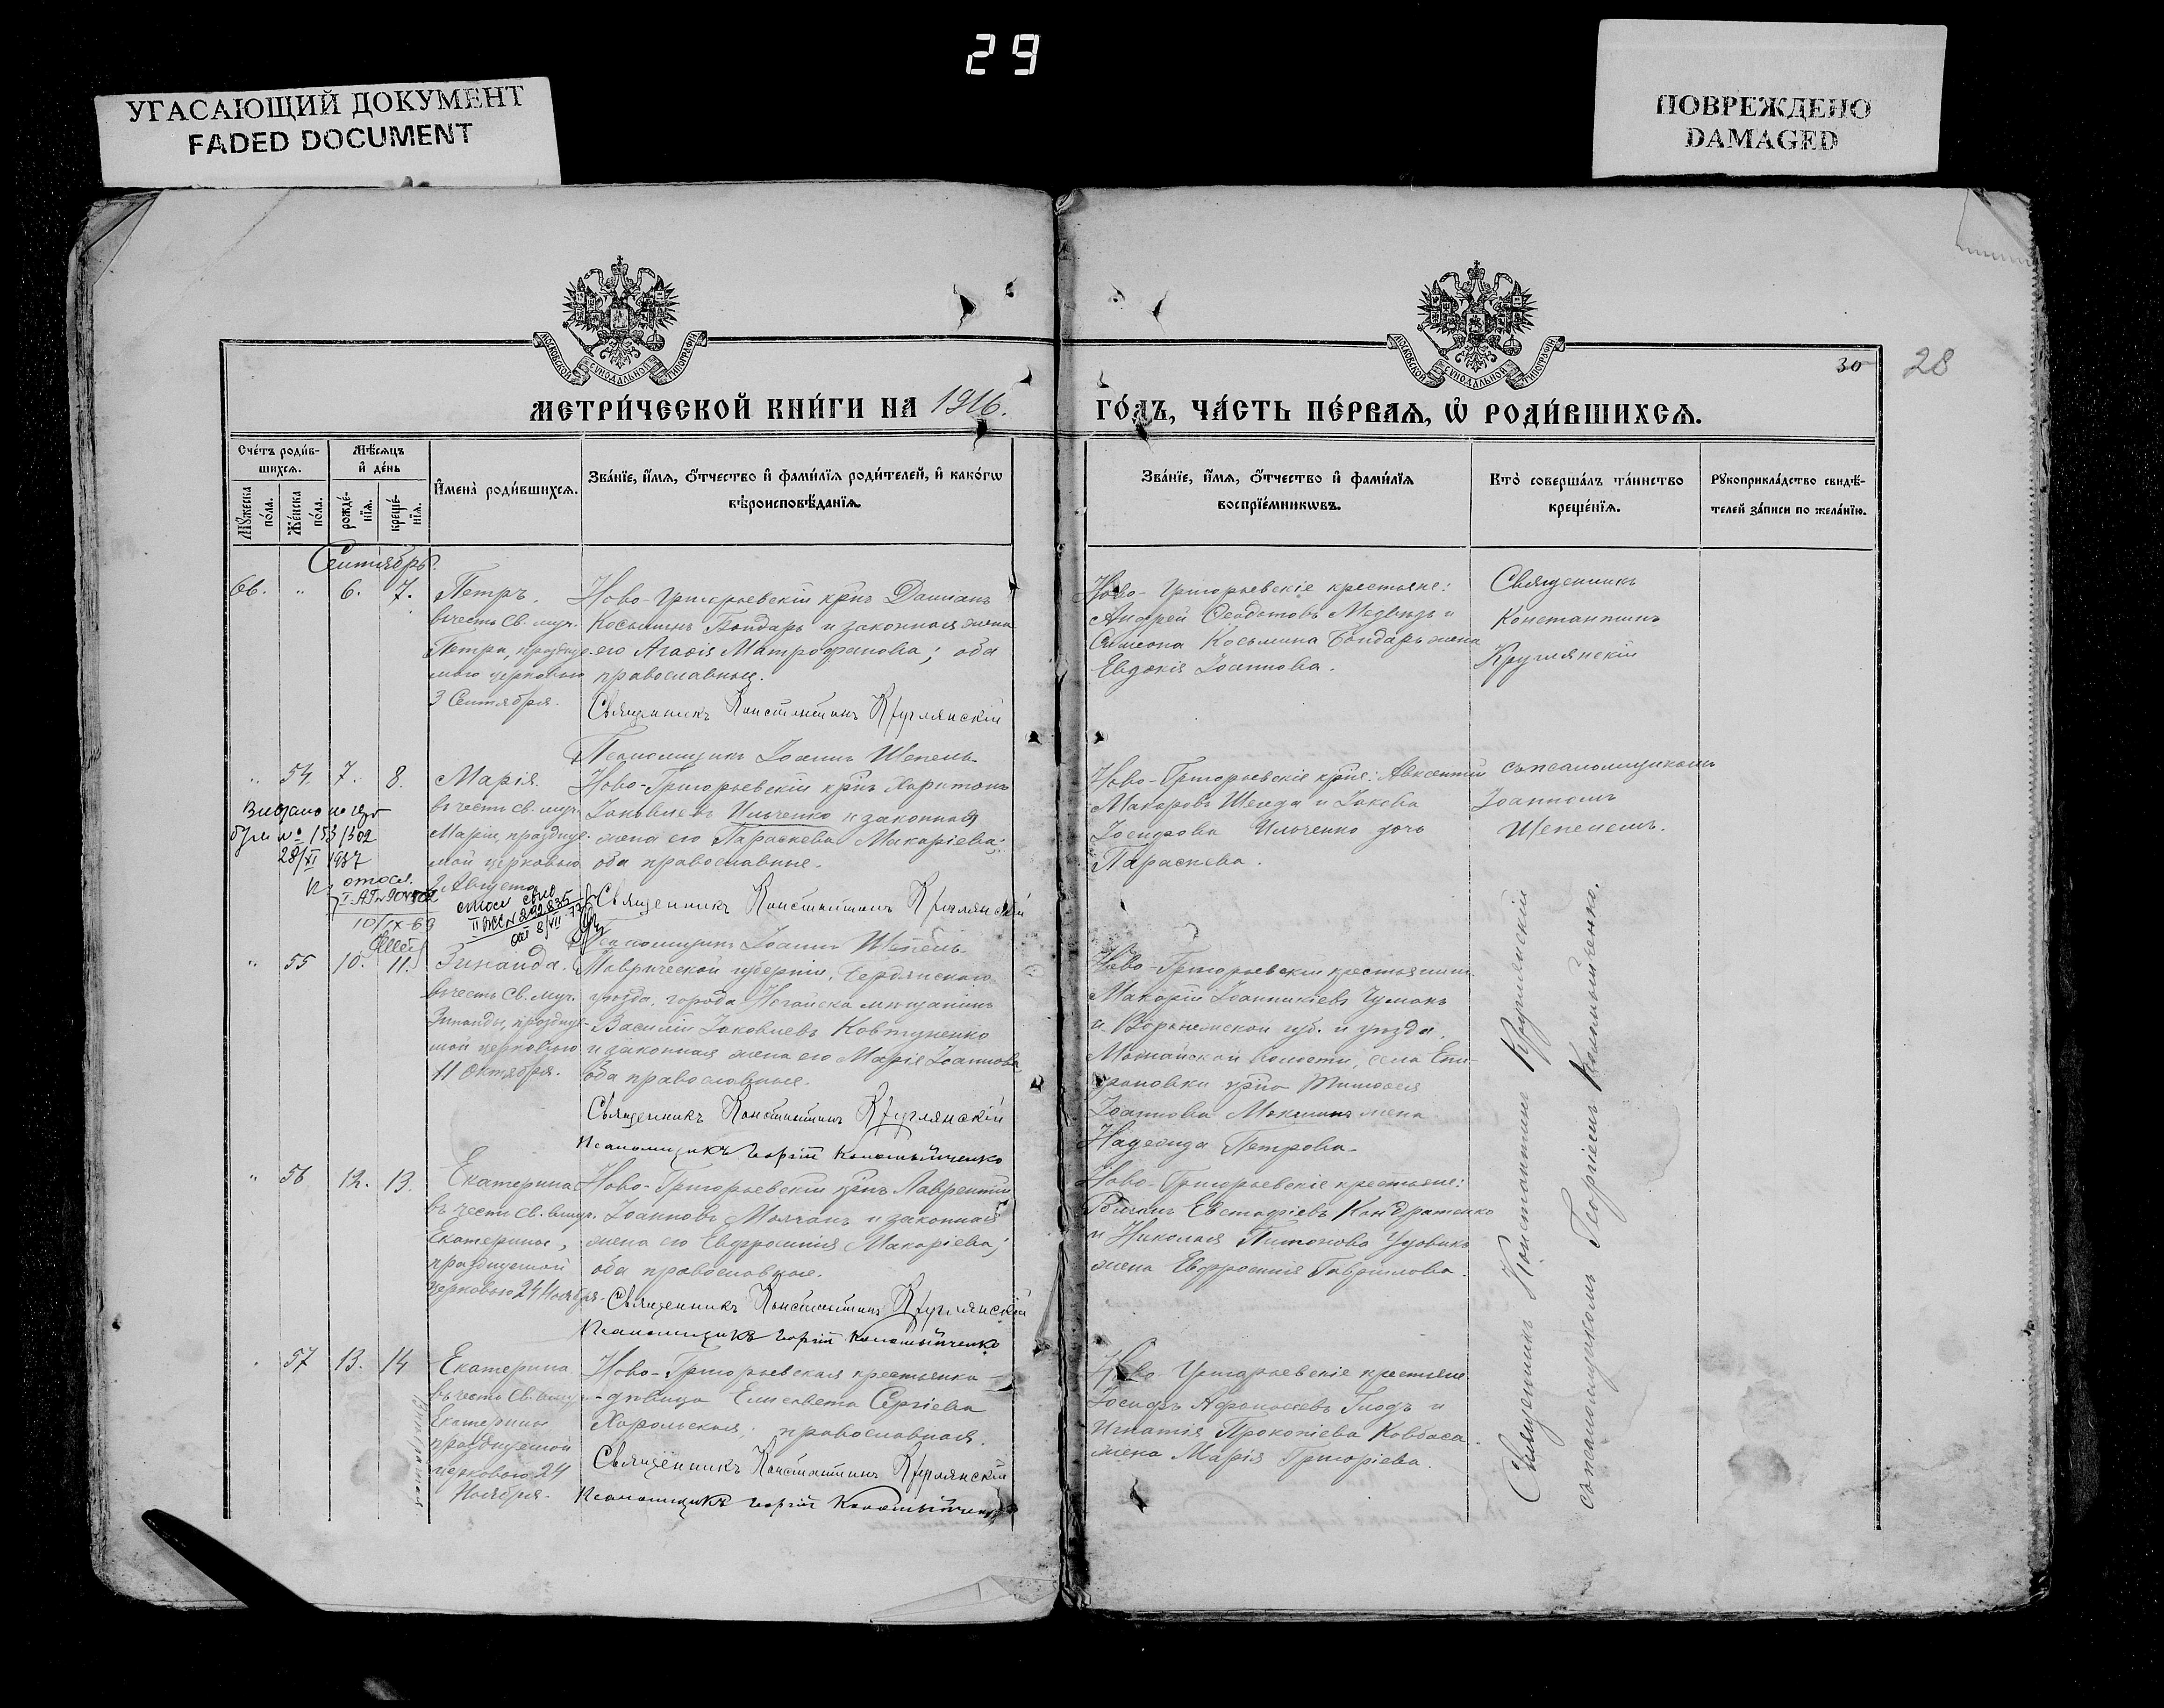 29
УГАСАЮЩИЙ ДОКУМЕНТ
FADED DOCUMENT
ПОВРЕЖДЕНО
DAMAGED
МОСКОВСКОЙ СѴНОДАЛЬНОЙ ТИПОГРАФІИ
МОСКОВСКОЙ СѴНОДАЛЬНОЙ ТИПОГРАФІИ
30
28
МЕТРИ́ЧЕСКОЙ КНИ́ГИ НА 1916.
ГО́ДЪ, ЧА́СТЬ ПЕ́РВАѦ, Ѽ РОДИ́ВШИХСѦ.
Сче́тъ роди́в-
шихсѧ.
Мѣ́сѧцъ
и҆ де́нь
Мꙋ́жеска
по́ла.
Же́нска
по́ла.
рожде́-
нїѧ.
креще́-
нїѧ.
И҆мена̀ роди́вшихсѧ.
Зва́нїе, и҆́мѧ, ѻ҆́тчество и҆ фами́лїѧ роди́телей, и҆ како́гѡ
вѣроисповѣ́данїѧ.
Зва́нїе, и҆́мѧ, ѻ҆́тчество и҆ фами́лїѧ
воспрїе́мникѡвъ.
Кто̀ соверша́лъ та́инство
креще́нїѧ.
Рꙋкоприкла́дство свидѣ́-
телей за́писи по жела́нїю.
Сентябрь
66. " 6. 7. Петръ.
въ честь св. муч.
Петра, празднуе-
маго церковью
3 Сентября.
Ново-Григорьевскій крнъ Даміанъ
Косьминъ Бондарь и законная жена
его Агафія Митрофанова; оба
православные.
Священникъ Константинъ Круглянскій
Псаломщикъ Іоаннъ Шепель
Ново-Григорьевскіе крестьяне:
Андрей Ѳеодотовъ Медвѣдь и
Симеона Косьмина Бондарь жена
Евдокія Іоаннова.
Священникъ
Константинъ
Круглянскій
" 54 7. 8. Марія.
въ честь св. муч.
Маріи, празднуе-
мой церковью
Августа
28/XI 1937
10/IX-69
Ново-Григорьевскій крнъ Харитонъ
Іаковлевъ Ильченко и законная
жена его Параскева Макаріева;
оба православные.
Священникъ Константинъ Круглянскій
Псаломщикъ Іоаннъ Шепель
Ново-Григорьевскіе крне: Авксентій
Макаровъ Шенда и Іакова
Іосифова Ильченко дочь
Параскева.
съ псаломщикомъ
Іоанномъ
Шепелемъ.
" 55 10. 11. Зинаида.
въ честь св. муч.
Зинаиды, праздну-
мой церковью
11 Октября.
Таврической губерніи, Бердянскаго
уѣзда, города Ногайска мѣщанинъ
Василій Іаковлевъ Ковтуненко
и законная жена его Марія Іоаннова
оба православные.
Священникъ Константинъ Круглянскій
Псаломщикъ Георгій Коломыйченко
Ново-Григорьевскій крестьянинъ
Макарій Іоанникіевъ Чумакъ
и Воронежской губ. и уѣзда,
волости, села
Іоаннова жена
Надежда Петрова.
" 56 12. 13. Екатерина
въ честь св. вмуч.
Екатерины,
празднуемой
церковью 24 Ноября.
Ново-Григорьевскій крнъ Лаврентій
Іоанновъ Молчанъ и законная
жена его Евфросинія Макаріева;
оба православные.
Священникъ Константинъ Круглянскій
Псаломщикъ Георгій Коломыйченко
Ново-Григорьевскіе крестьяне:
Романъ Евстафіевъ Кондратенко
и Николая Удовика
жена Евфросинія Гавріилова.
57 13. 14 Екатерина
въ честь св. вмуч.
Екатерины
празднуемой
церковью 24
Ноября.
Ново-Григорьевская крестьянка
дѣвица Елисавета Сергіева
Хорольская, православная.
Священникъ Константинъ Круглянскій
Псаломщикъ Георгій Коломыйченко
Ново-Григорьевскіе крестьяне
Іосифъ Афанасіевъ Глодъ и
Игнатія Прокопіева Ковбаса
жена Марія Григоріева.
Священникъ Константинъ Круглянскій
съ псаломщикомъ Георгіемъ Коломыйченко.